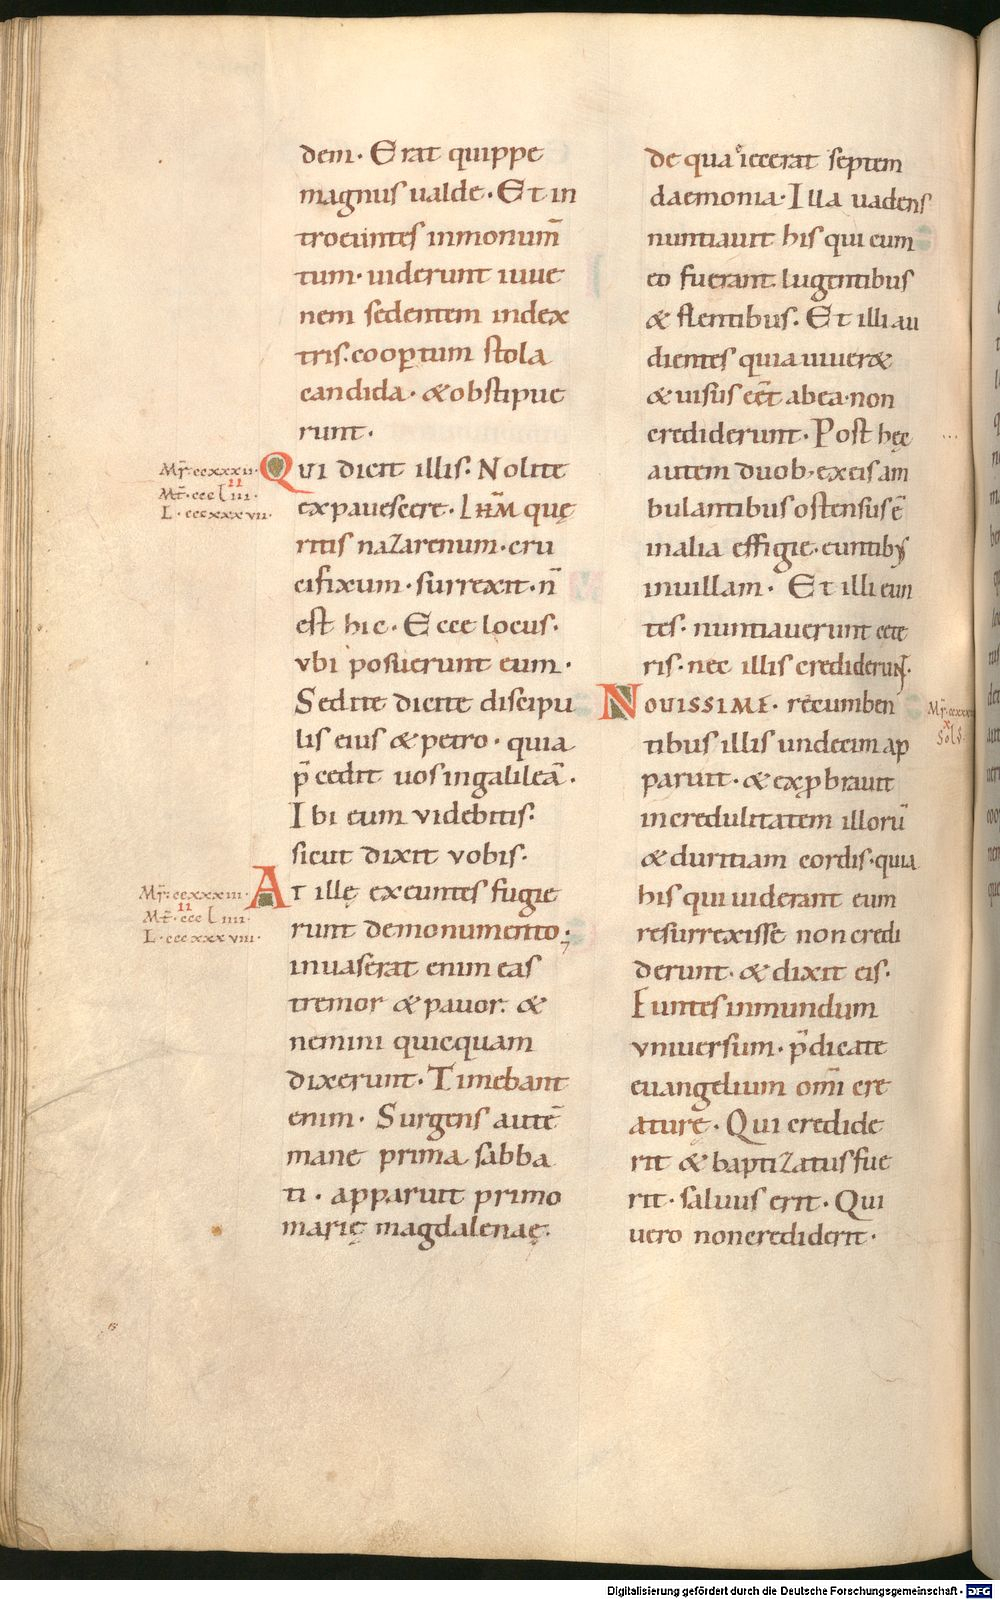 dem· Erat quippe
magnus ualde· Et in
troeuntes inmonum̄
tum· uiderunt iuue
nem sedentem index
tris· coop̲tum stola
candida· &obstipue
runt·
Mr̄·ccxxxii·
II
Mt̄·ccc Liii·
L·cccxxxvii·
QVI dicit illis· Nolite
expauescere· IHM̄ quę
ritis naZarenum· cru
cifixum· surrexit· n̄
est hic· Ecce locus·
vbi posuerunt eum·
Sed ite dicite discipu
lis eius & petro· quia
p̄cedit uos ingalileā·
Ibi eum videbitis·
sicut dixit vobis·
Mr̄·ccxxxiii·
II
Mt̄·ccc Liiii·
L·cccxxxviii·
AT illę exeuntes fugie
runt demonumento·
inuaserat enim eas
tremor & pauor· &
nemini quicquam
dixerunt· Timebant
enim· Surgens autē
mane prima sabba
ti· apparuit primo
marię magdalenaę·
de qua iecerat septem
daemonia· Illa uadens
nuntiauit his qui cum
eo fuerant· lugentibus
& flentibus· Et illi au
dientes quia uiuer&
& uisus eēt ab ea· non
crediderunt· Post hęc
autem duob; exeis am
bulantibus ostensus ē
inalia effigie· euntib;
inuillam· Et illi eun
tes· nuntiauerunt cete
ris· nec illis crediderunt·
NOVISSIME· recumben
tibus illis undecim ap
paruit· & exp̲brauit
incredulitatem illorū
& duritiam cordis· quia
his qui uiderant eum
resurrexisse non credi
derunt· & dixit eis·
Euntes inmundum
vniuersum· p̄dicate
euangelium omni cre
aturę· Qui credide
rit & baptiZatus fue
rit· saluus erit· Qui
uero non crediderit·
Digitalisierung gefördert durch die Deutsche Forschungsgemeinschaft · DFG